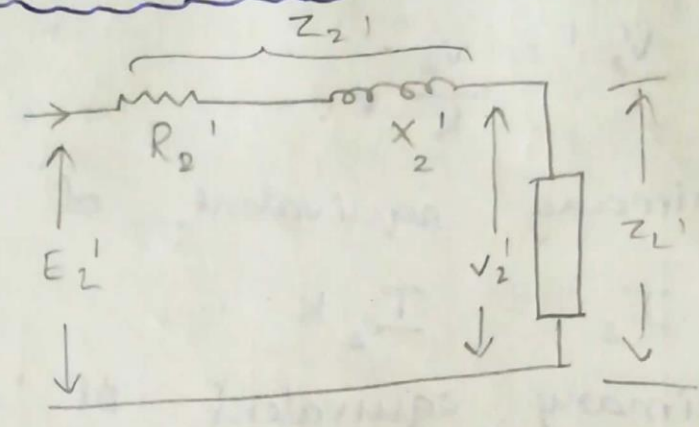 Z₂'
R₂'
X₂'
E₂'
V₂'
Z_L'